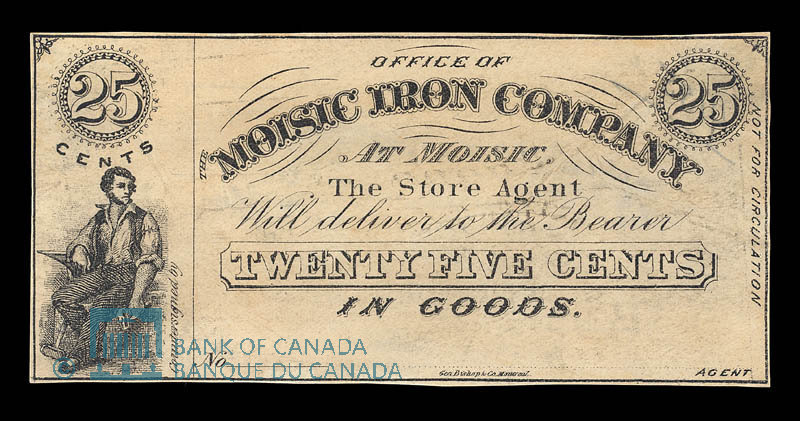 25
CENTS
Countersigned by
OFFICE OF
THE
MOISIC IRON COMPANY
AT MOISIC,
The Store Agent
Will deliver to the Bearer
TWENTY FIVE CENTS
IN GOODS.
No
Geo. Bishop & Co. Montreal.
AGENT
25
NOT FOR CIRCULATION
© BANK OF CANADA
BANQUE DU CANADA